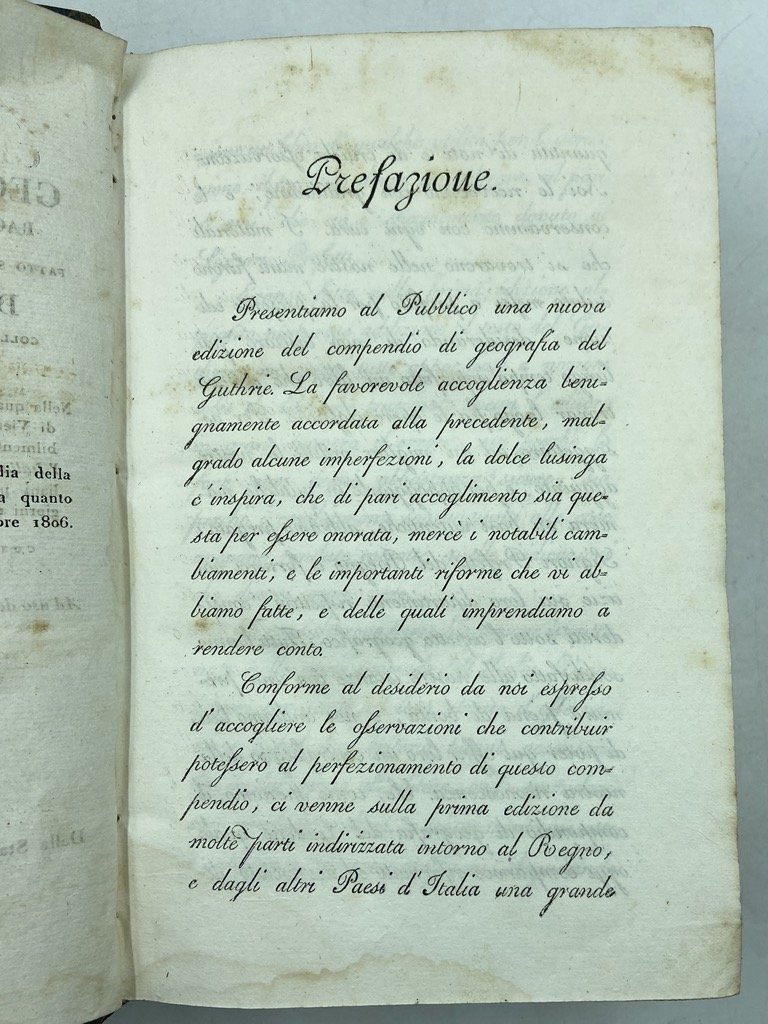 dia della
a quanto
ore 1806.
Prefazioue.
Presentiamo al Pubblico una nuova
edizione del compendio di geografia del
Guthrie. La favorevole accoglienza beni=
gnamente accordata alla precedente, mal=
grado alcune imperfezioni, la dolce lusinga
c'inspira, che di pari accoglimento sia que=
sta per essere onorata, mercè i notabili cam=
biamenti, e le importanti riforme che vi ab=
biamo fatte, e delle quali imprendiamo a
rendere conto.
Conforme al desiderio da noi espresso
d'accogliere le osservazioni che contribuir
potessero al perfezionamento di questo com=
pendio, ci venne sulla prima edizione da
molte parti indirizzata intorno al Regno,
e dagli altri Paesi d'Italia una grande